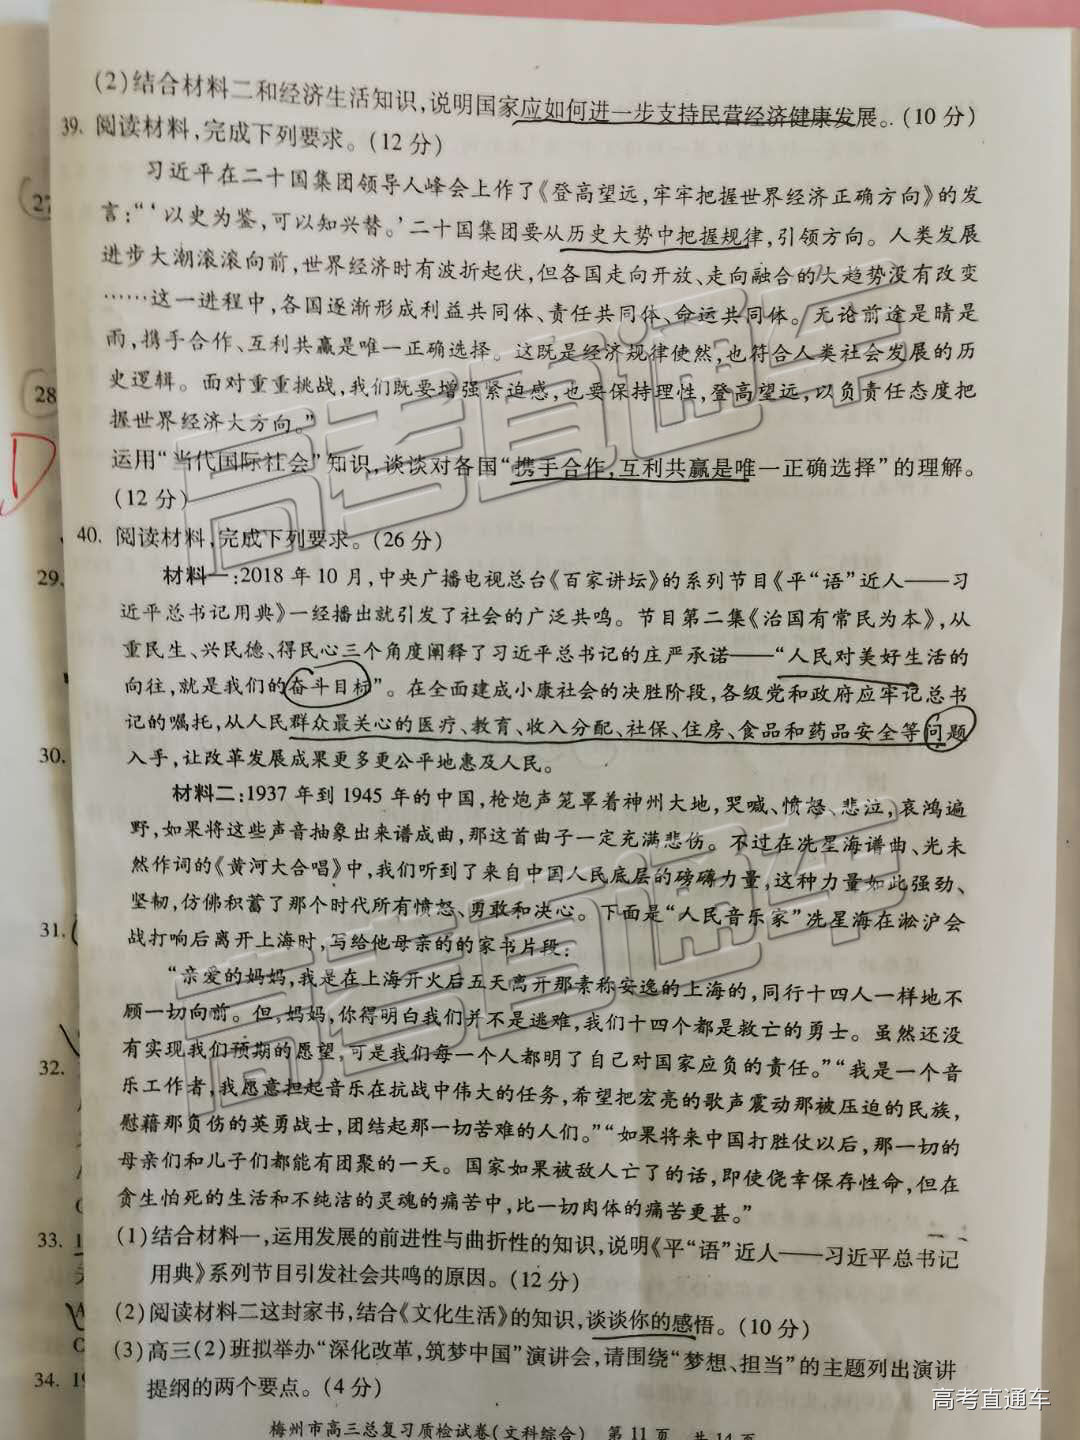 (2)结合材料二和经济生活知识,说明国家应如何进一步支持民营经济健康发展。(10分)
39. 阅读材料,完成下列要求。(12分)
习近平在二十国集团领导人峰会上作了《登高望远,牢牢把握世界经济正确方向》的发
言:“‘以史为鉴,可以知兴替。’二十国集团要从历史大势中把握规律,引领方向。人类发展
进步大潮滚滚向前,世界经济时有波折起伏,但各国走向开放、走向融合的大趋势没有改变
……这一进程中,各国逐渐形成利益共同体、责任共同体、命运共同体。无论前途是晴是
雨,携手合作、互利共赢是唯一正确选择。这既是经济规律使然,也符合人类社会发展的历
史逻辑。面对重重挑战,我们既要增强紧迫感,也要保持理性,登高望远,以负责任态度把
握世界经济大方向。”
运用“当代国际社会”知识,谈谈对各国“携手合作,互利共赢是唯一正确选择”的理解。
(12分)
40. 阅读材料,完成下列要求。(26分)
材料一:2018年10月,中央广播电视总台《百家讲坛》的系列节目《平“语”近人——习
近平总书记用典》一经播出就引发了社会的广泛共鸣。节目第二集《治国有常民为本》,从
重民生、兴民德、得民心三个角度阐释了习近平总书记的庄严承诺——“人民对美好生活的
向往,就是我们的奋斗目标”。在全面建成小康社会的决胜阶段,各级党和政府应牢记总书
记的嘱托,从人民群众最关心的医疗、教育、收入分配、社保、住房、食品和药品安全等问题
入手,让改革发展成果更多更公平地惠及人民。
材料二:1937年到1945年的中国,枪炮声笼罩着神州大地,哭喊、愤怒、悲泣,哀鸿遍
野,如果将这些声音抽象出来谱成曲,那这首曲子一定充满悲伤。不过在冼星海谱曲、光未
然作词的《黄河大合唱》中,我们听到了来自中国人民底层的磅礴力量,这种力量如此强劲、
坚韧,仿佛积蓄了那个时代所有愤怒、勇敢和决心。下面是“人民音乐家”冼星海在淞沪会
战打响后离开上海时,写给他母亲的的家书片段:
“亲爱的妈妈,我是在上海开火后五天离开那素称安逸的上海的,同行十四人一样地不
顾一切向前。但,妈妈,你得明白我们并不是逃难,我们十四个都是救亡的勇士。虽然还没
有实现我们预期的愿望,可是我们每一个人都明了自己对国家应负的责任。”“我是一个音
乐工作者,我愿意担起音乐在抗战中伟大的任务,希望把宏亮的歌声震动那被压迫的民族,
慰藉那负伤的英勇战士,团结起那一切苦难的人们。”“如果将来中国打胜仗以后,那一切的
母亲们和儿子们都能有团聚的一天。国家如果被敌人亡了的话,即使侥幸保存性命,但在
贪生怕死的生活和不纯洁的灵魂的痛苦中,比一切肉体的痛苦更甚。”
(1)结合材料一,运用发展的前进性与曲折性的知识,说明《平“语”近人——习近平总书记
用典》系列节目引发社会共鸣的原因。(12分)
(2)阅读材料二这封家书,结合《文化生活》的知识,谈谈你的感悟。(10分)
(3)高三(2)班拟举办“深化改革,筑梦中国”演讲会,请围绕“梦想、担当”的主题列出演讲
提纲的两个要点。(4分)
梅州市高三总复习质检试卷(文科综合) 第11页 共14页
27
28
D
29.
30.
31.
32.
33. 1
34. 19
高考直通车
高考直通车
高考直通车